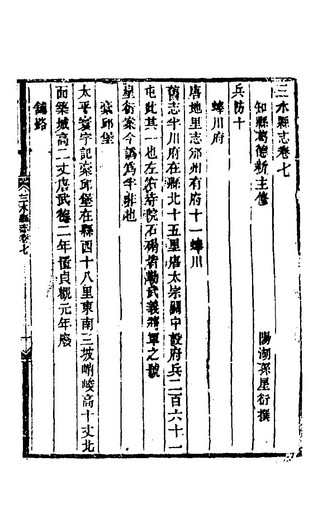 三水縣志卷七
知縣葛德新主修
陽湖孫星衍撰
兵防十
蜯川府
唐地里志邠州有府十一蜯川
舊志半川府在縣北十五里唐太宗關中設府兵二百六十一
屯此其一也左右持院石碭皆勒武義將軍之號
星衍案今譌為半非也
豪邱堡
太平寰宇記豪邱堡在縣四十八里東南三坡峭峻高十丈北
面築城高二丈唐武德二年置貞觀元年廢
鋪路
三水縣志卷七